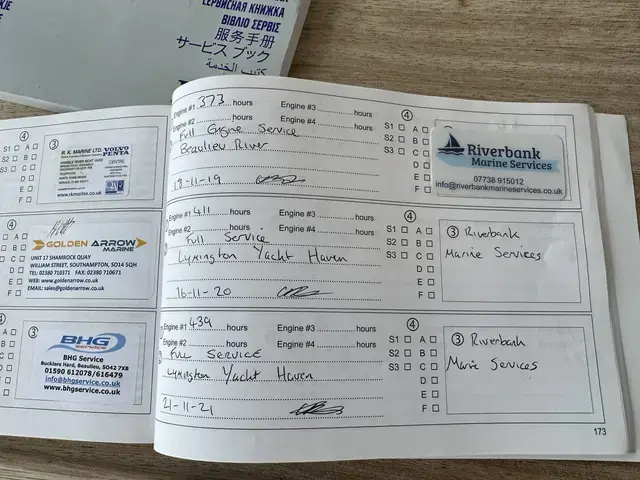 СЕРВИСНАЯ КНИЖКА
ΒΙΒΛΙΟ ΣΕΡΒΙΣ
服务手册
サービス ブック
كتيب الخدمة
④
S1 A
S2 B
S3 C
D
E
F
③
R. K. MARINE LTD.
VOLVO
PENTA
CENTRE
www.rkmarine.co.uk
A
B
C
D
E
F
GOLDEN ARROW
MARINE
UNIT 17 SHAMROCK QUAY
WILLIAM STREET, SOUTHAMPTON, SO14 5QH
TEL: 02380 710371 FAX: 02380 710671
WEB: www.goldenarrow.co.uk
EMAIL: sales@goldenarrow.co.uk
④
A
B
C
D
E
F
③
BHG
Service
BHG Service
Bucklers Hard, Beaulieu, SO42 7XB
01590 612078/616479
info@bhgservice.co.uk
www.bhgservice.co.uk
Engine #1 373 hours Engine #3 hours
Engine #2 hours Engine #4 hours
Full Engine Service
Beaulieu River
19-11-19
④
S1 A
S2 B
S3 C
D
E
F
Riverbank
Marine Services
07738 915012
info@riverbankmarineservices.co.uk
Engine #1 411 hours Engine #3 hours
Engine #2 hours Engine #4 hours
Full Service
Lymington Yacht Haven
16-11-20
④
S1 A
S2 B
S3 C
D
E
F
③ Riverbank
Marine Services
Engine #1 439 hours Engine #3 hours
Engine #2 hours Engine #4 hours
Full Service
Lymington Yacht Haven
21-11-21
④
S1 A
S2 B
S3 C
D
E
F
③ Riverbank
Marine Services
173